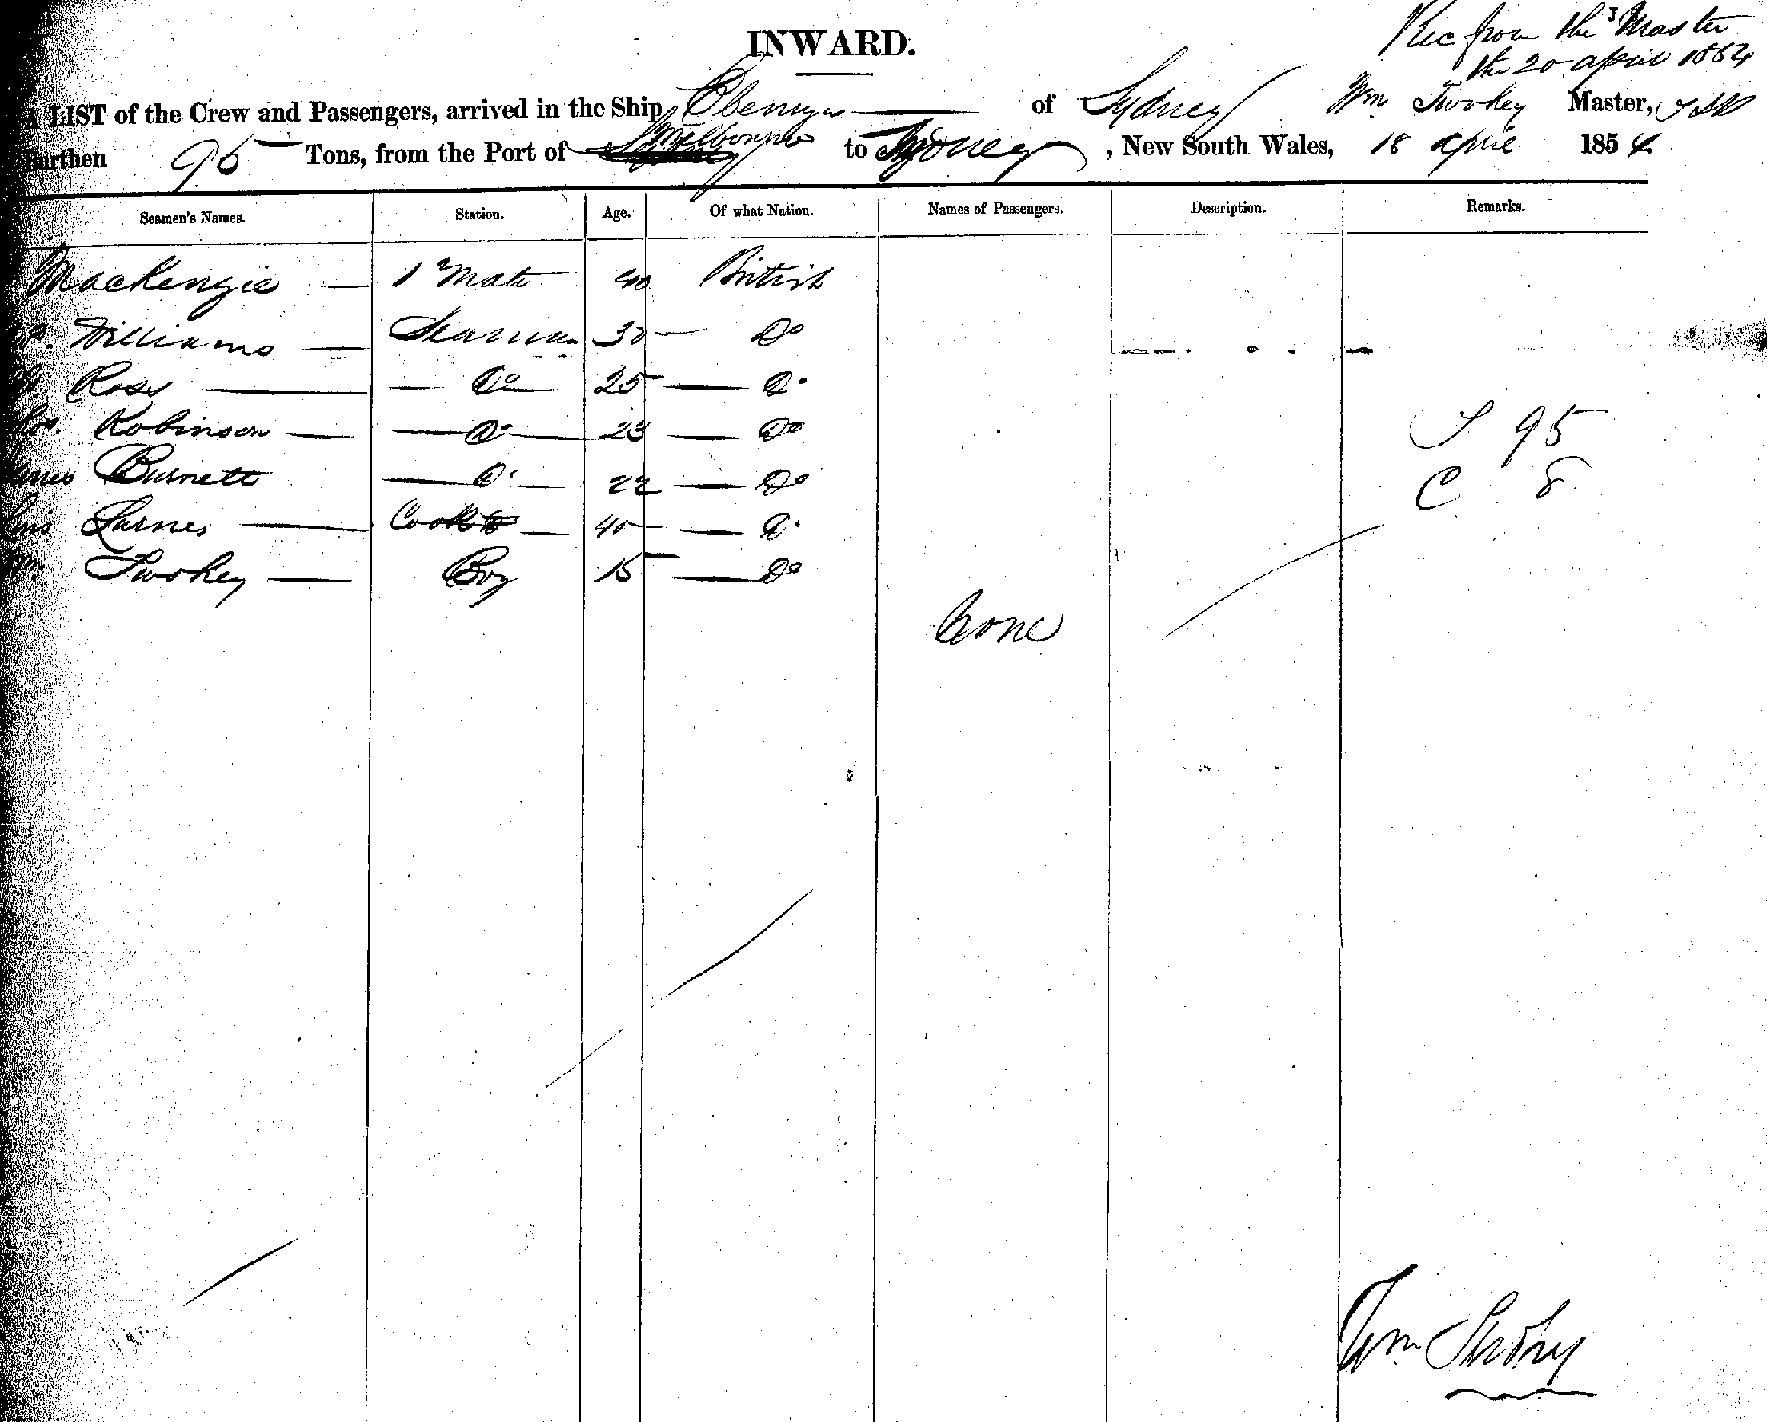 INWARD.
Rec from the Master
the 20 april 1854
LIST of the Crew and Passengers, arrived in the Ship Ebenezer of Sydney Wm Twohey Master,
Burthen 95 Tons, from the Port of Melbourne to Sydney, New South Wales, 18 april 1854
Seamen's Names. Station. Age. Of what Nation. Names of Passengers. Description. Remarks.
MacKenzie 1 Mate 40 British
Williams Seaman 30 Do
Ross Do 25 Do
Robinson Do 23 Do
Burnett Do 22 Do
Cook 40 Do
Twohey Boy 15 Do
T 95
C 8
None
Wm Twohey